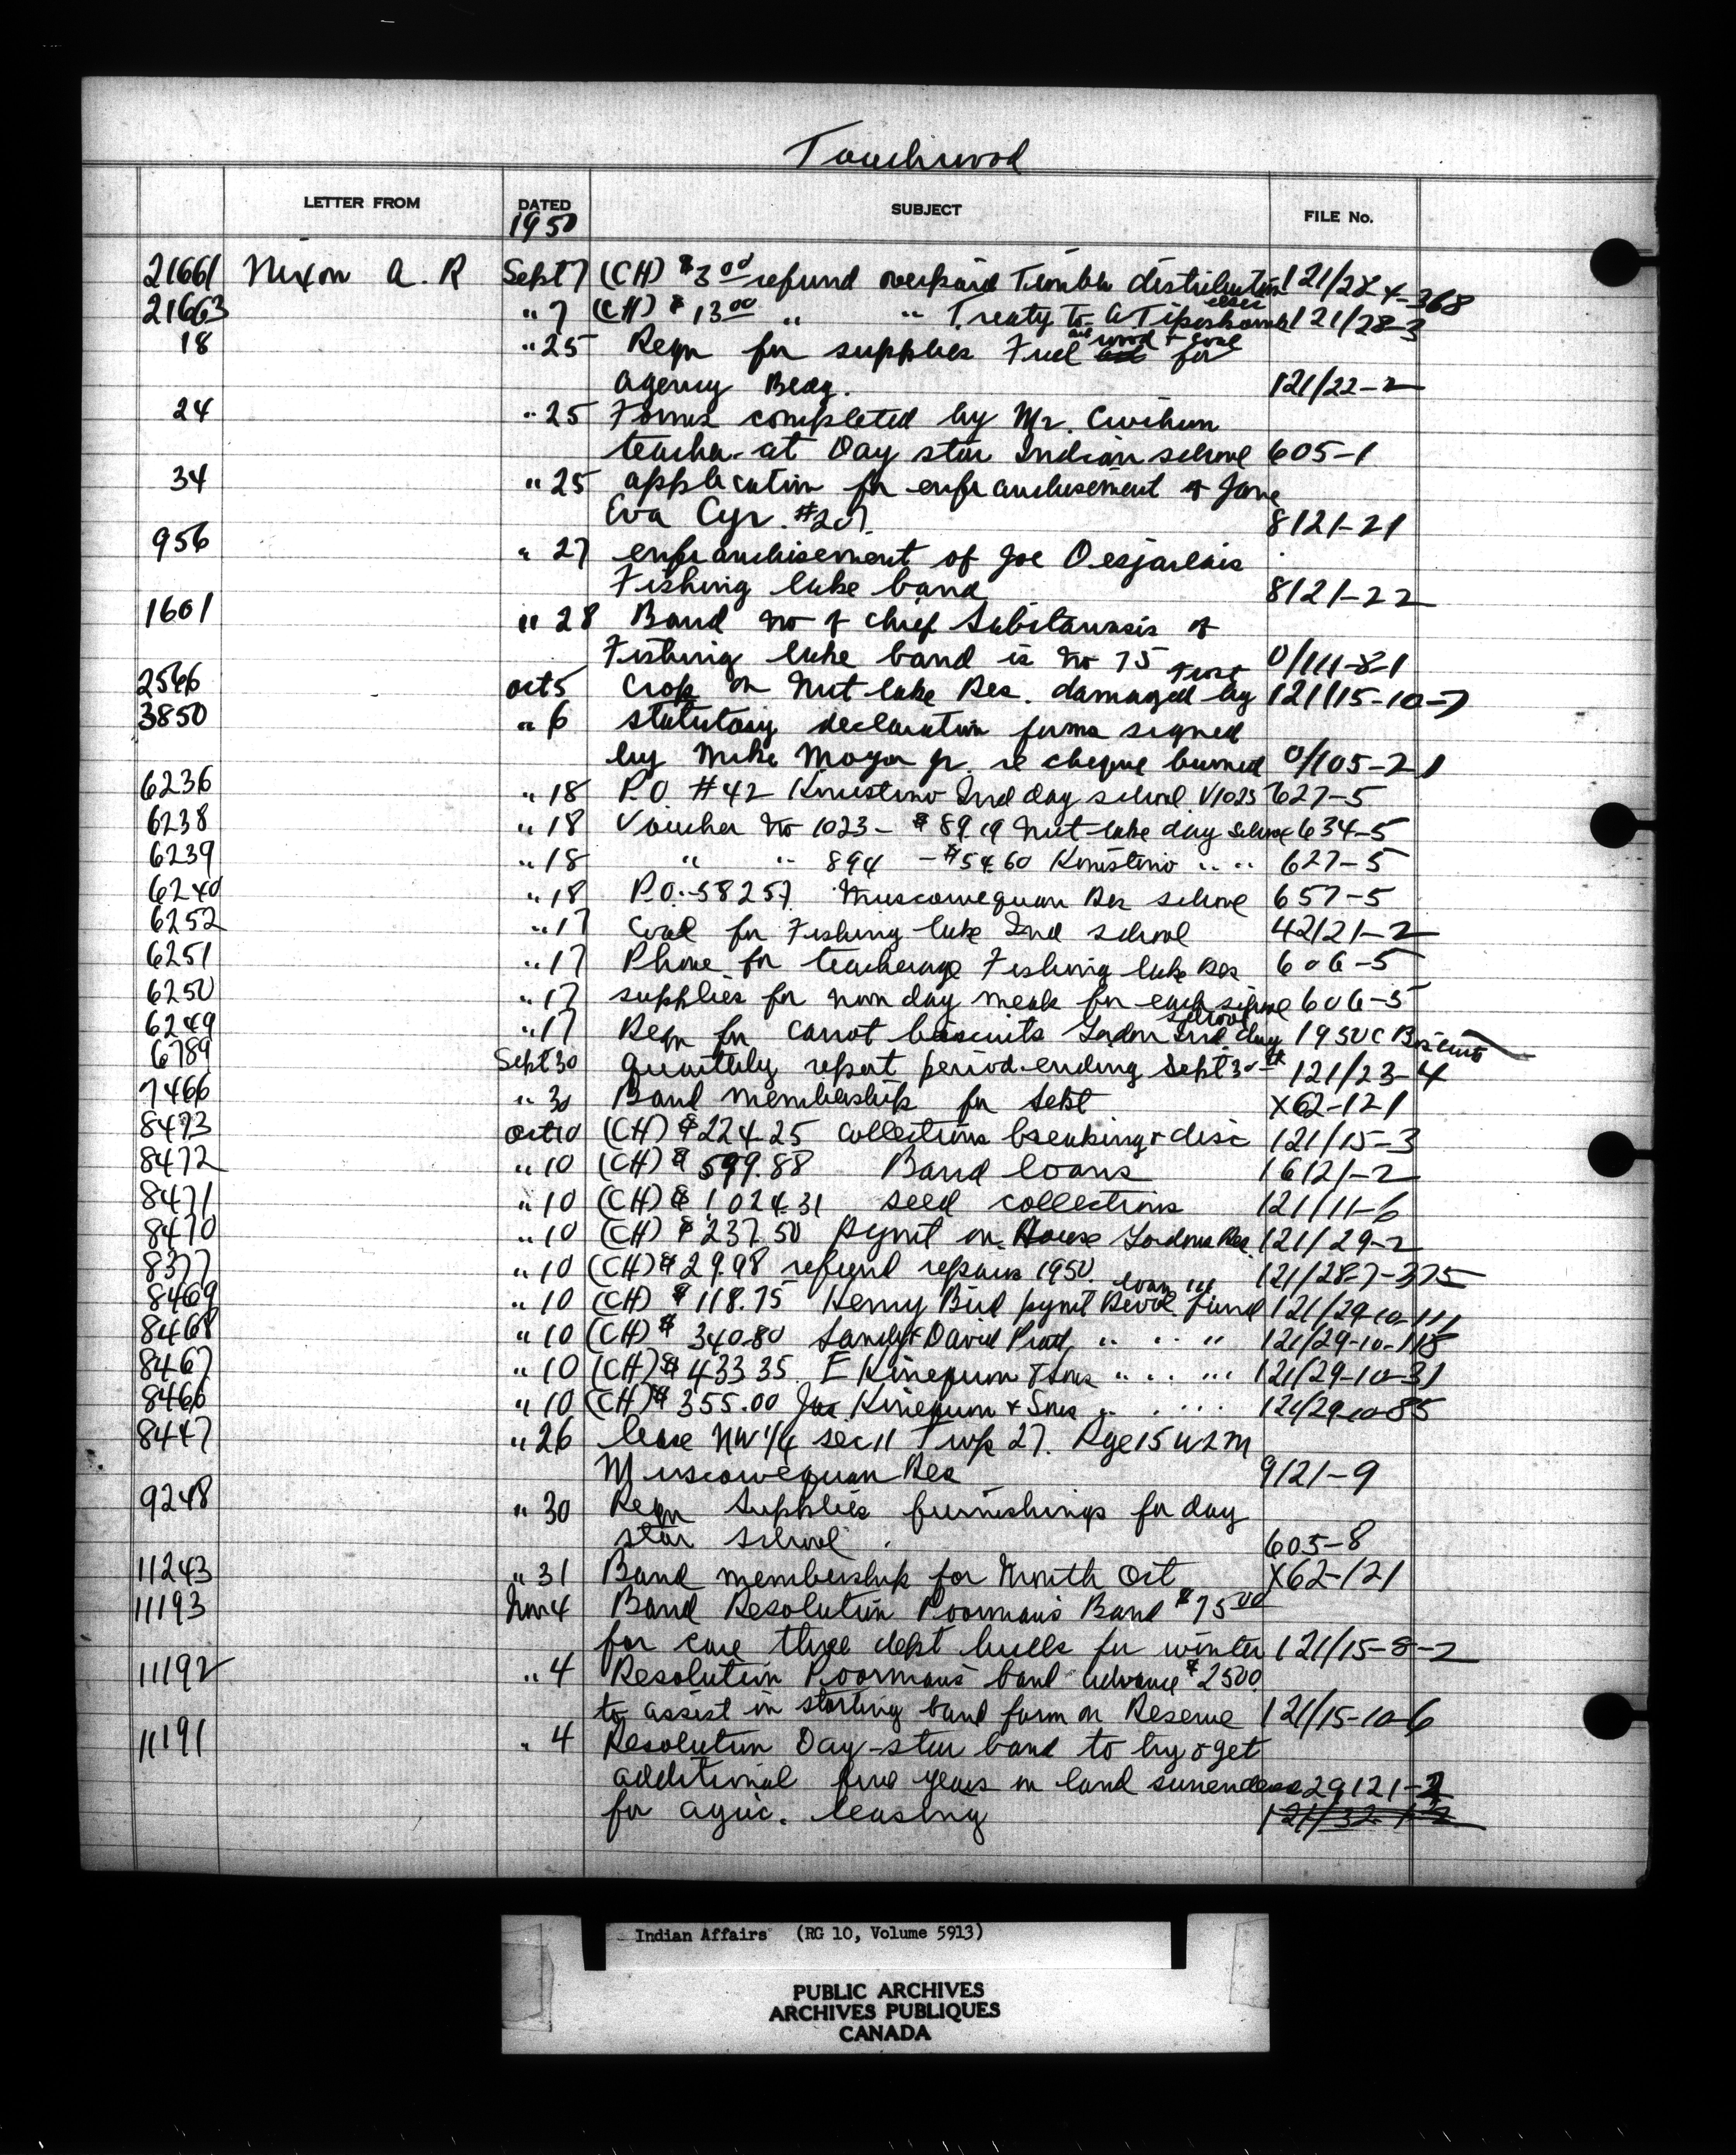 Touchwood
LETTER FROM DATED SUBJECT FILE No.
1950
21661 Nixon A. R Sept 7 (CH) $3 00 refund overpaid Timber distribution 121/28-4-368
21663 " 7 (CH) $13 00 " " Treaty to 121/28-3
18 " 25 Reqn for supplies Fuel wood & coal for
agency Bldg. 121/22-2
24 " 25 Forms completed by Mr. Cwihun
teacher at Day star Indian school 605-1
34 " 25 application for enfranchisement of Jane
Eva Cyr. #207. 8121-21
956 " 27 enfranchisement of Joe Desjarlais
Fishing lake band 8121-22
1601 " 28 Band no of chief of
Fishing lake band is no 75 0/111-8-1
frost
2546 oct 5 Crop on Nut lake Res. damaged by 121/15-10-7
3850 " 6 statutory declaration forms signed
by Mike Moyan jr. re cheque burned 0/105-2-1
6236 " 18 P.O. #42 Kinistino Ind day school V1023 627-5
6238 " 18 Voucher no 1023 - $89.19 Nut-lake day school 634-5
6239 " 18 " " 894 - $54.60 Kinistino " " 627-5
6240 " 18 P.O.-58257. Muscowequan Res school 657-5
6252 " 17 Coal for Fishing lake Ind school 42121-2
6251 " 17 Phone for teacherage Fishing lake Res 606-5
6250 " 17 supplies for noon day meals for each school 606-5
school
6249 " 17 Reqn for carrot biscuits Gordon Ind. day 1950 C Biscuits
6789 Sept 30 Quarterly report period-ending Sept 30th 121/23-4
7466 " 30 Band membership for Sept X62-121
8473 oct 10 (CH) $224.25 collections breaking & disc 121/15-3
8472 " 10 (CH) $599.88 Band loans 16121-2
8471 " 10 (CH) $1,024.31 seed collections 121/11-6
8470 " 10 (CH) $237.50 pymt on House Gordons Res. 121/29-2
8377 " 10 (CH) $29.98 refund repairs 1950. 121/28-7-375
loan
8469 " 10 (CH) $118.75 Henry Bird pymt Revol. fund 121/29-10-111
8468 " 10 (CH) $340.80 Sandy & David Pratt, " " " 121/29-10-118
8467 " 10 (CH) $433.35 E Kinequon & Sons " " " 121/29-10-31
8466 " 10 (CH) $355.00 Jas. Kinequon & Sons " " " 121/29-10-85
8447 " 26 lease NW 1/4 sec 11 Twp 27. Rge 15 W2M
Muscowequan Res 9121-9
9248 " 30 Reqn Supplies furnishings for day
star school. 605-8
11243 " 31 Band membership for Month Oct X62-121
11193 Nov 4 Band Resolution Poorman's Band $75 00
for care three dept bulls for winter 121/15-8-2
11192 " 4 Resolution Poorman's band advance $2500.
to assist in starting band farm on Reserve 121/15-10-6
11191 " 4 Resolution Day-star band to try & get
additional five years on land surrenders 29121-2
for agric. leasing 121/32-1-2
Indian Affairs (RG 10, Volume 5913)
PUBLIC ARCHIVES
ARCHIVES PUBLIQUES
CANADA